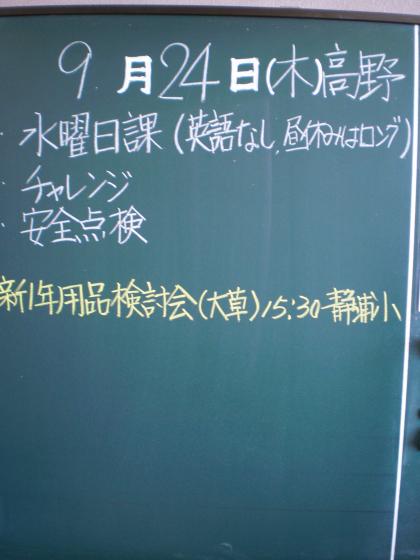 9月24日(木)高野
・水曜日課(英語なし,昼休みはロング)
・チャレンジ
・安全点検
新1年用品検討会(大草)15:30静浦小